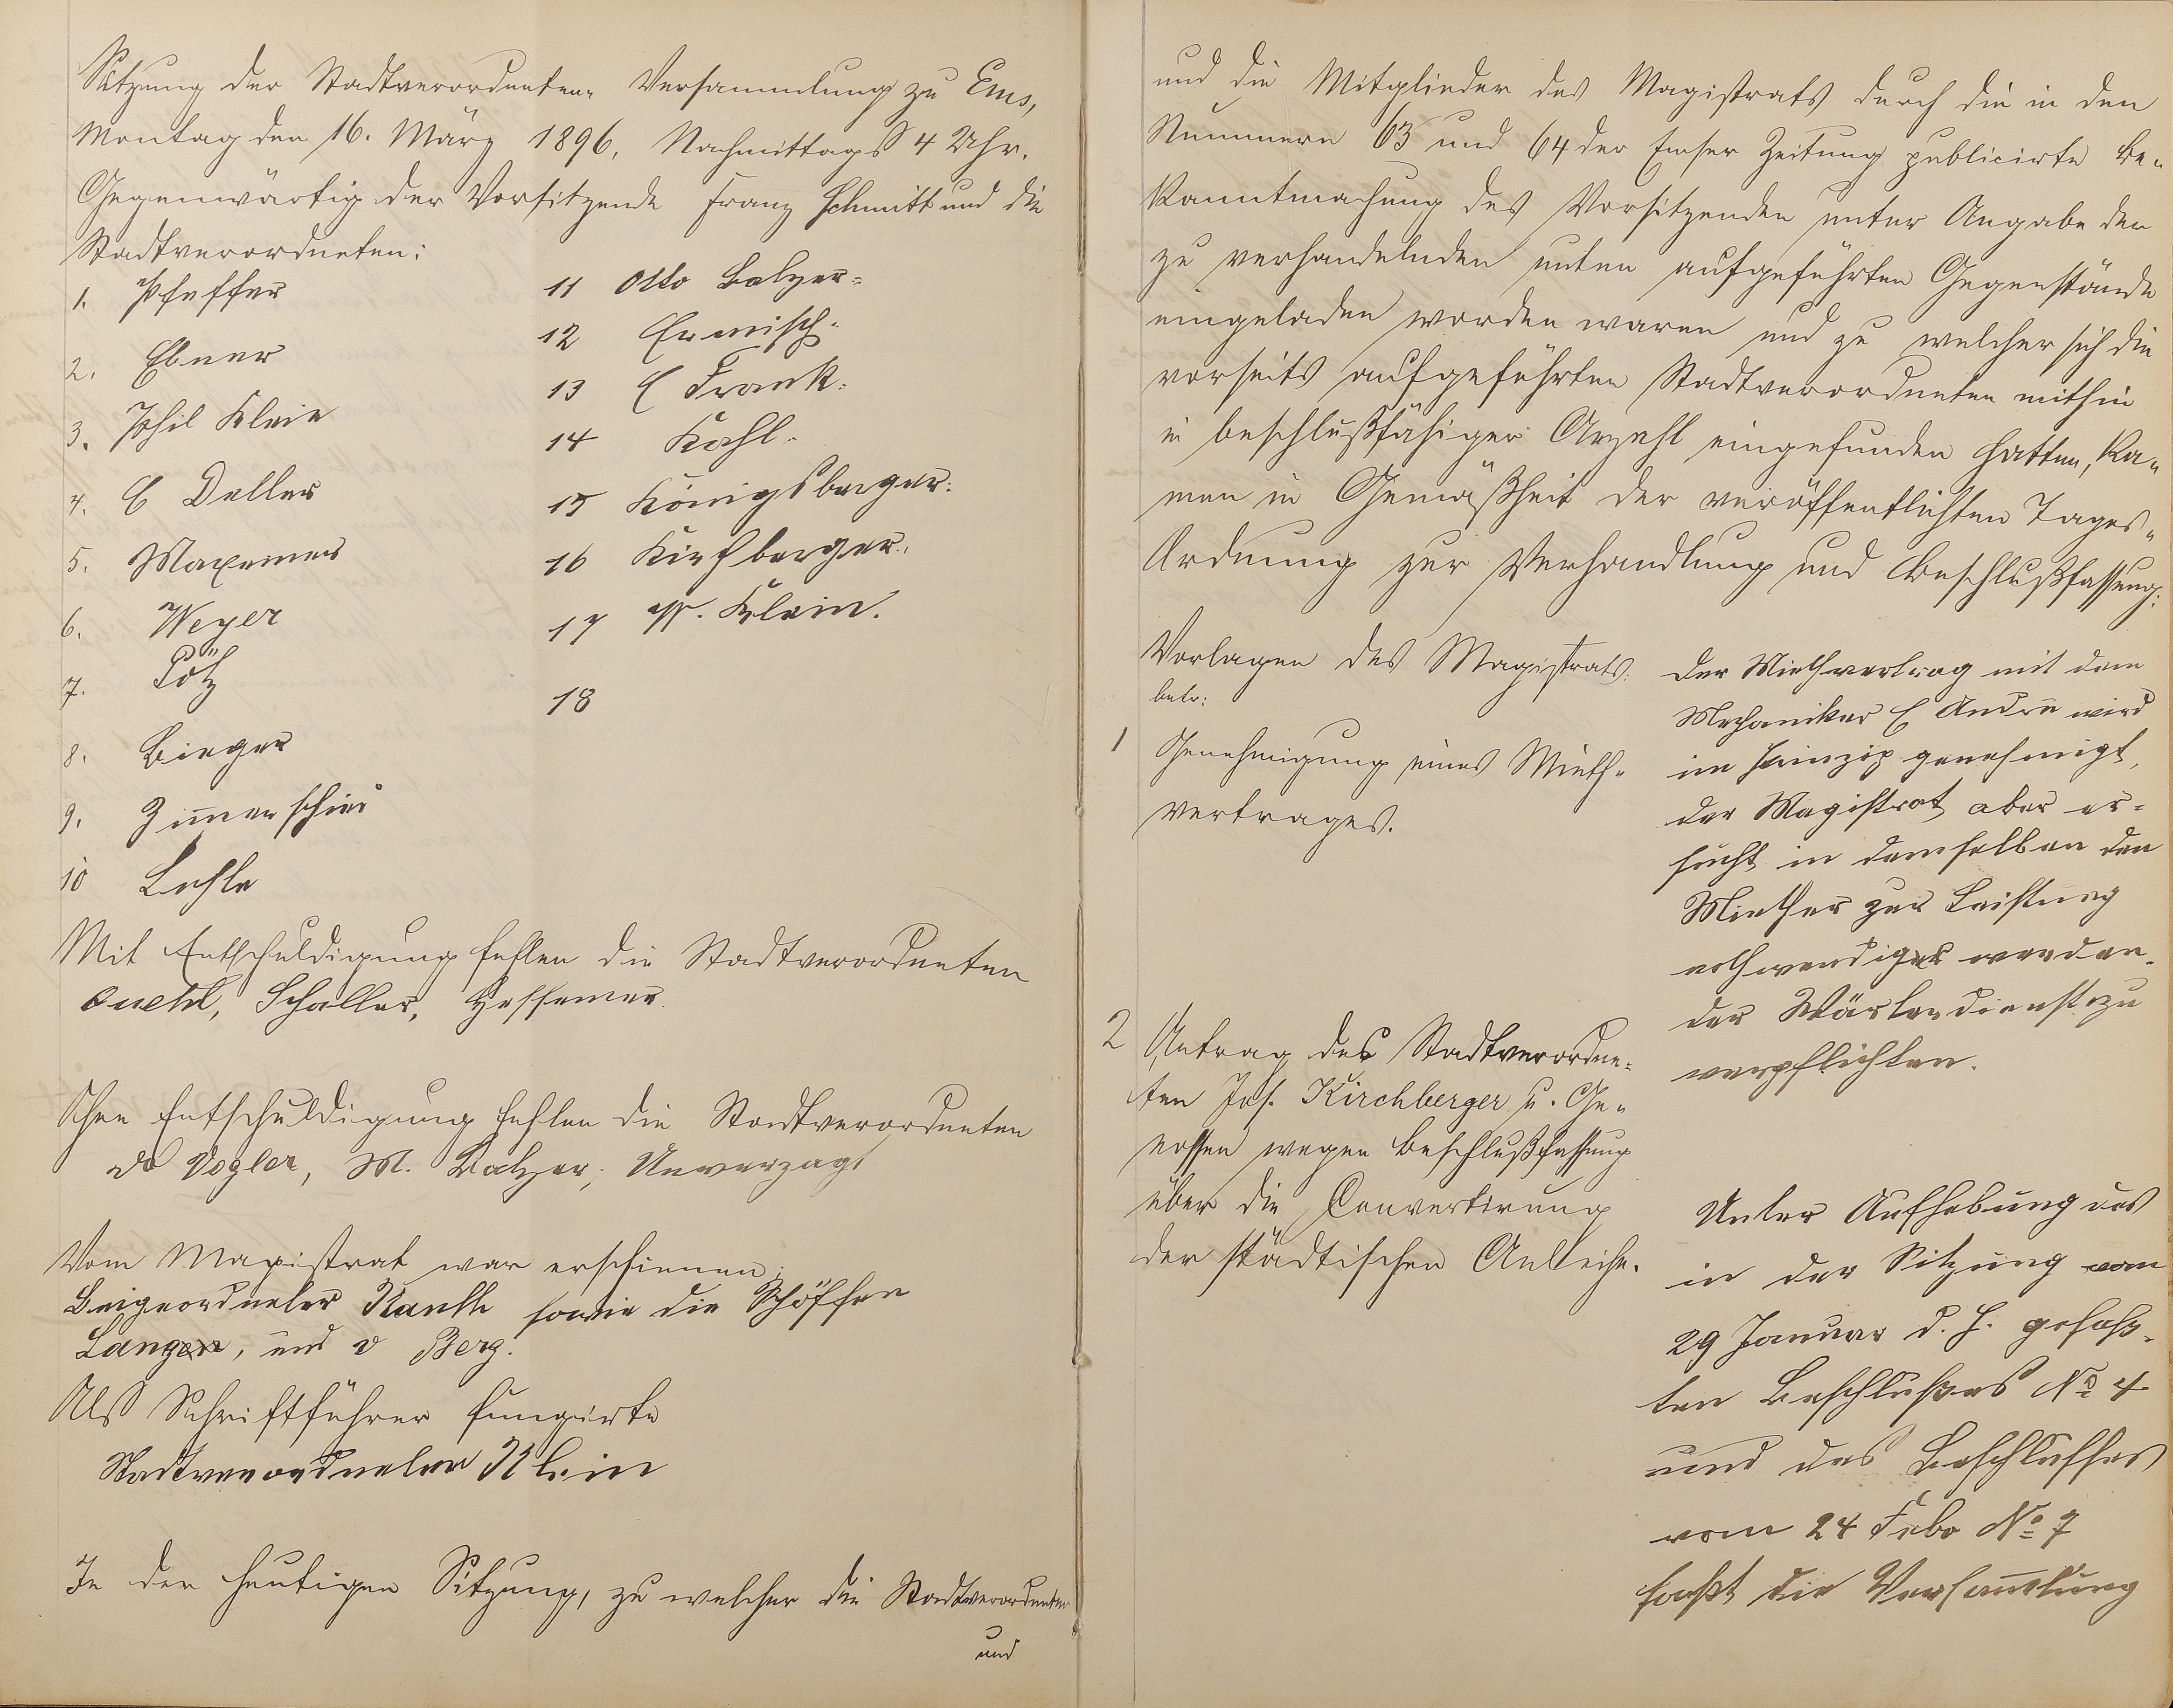 Sitzung der Stadtverordneten-Versammlung zu Ems,
Montag den 16. März 1896, Nachmittags 4 Uhr.
Gegenwärtig der Vorsitzende Franz Schmitt und die
Stadtverordneten:
1. Pfeffer
2. Ebner
3. Phil Klein
4. C Deller
5. Maxeiner
6. Weyer
7. Pötz
8. Bieger
9. Zimerschied
10 Lehle
11 Otto Balzer
12 Ermisch.
13 C Frank.
14 Kohl.
15 Königsberger.
16 Kirchberger.
17 W. Klein.
18
Mit Entschuldigung fehlen die Stadtverordneten
Schaller, Heffemer
Ohne Entschuldigung fehlen die Stadtverordneten
Vogler, M. Balzer, Unverzagt
Vom Magistrat war erschienen:
Beigeordneter Kauth sowie die Schöffen
Lange, und v Berg.
Als Schriftführer fungirte
Stadtverordneter Klein
In der heutigen Sitzung, zu welcher die Stadtverordneten
und
und die Mitglieder des Magistrats durch die in den
Nummern 63 und 64 der Emser Zeitung publicirte Be-
kanntmachung des Vorsitzenden unter Angabe der
zu verhandelnden unten aufgeführten Gegenstände
eingeladen worden waren und zu welcher sich die
vorseits aufgeführten Stadtverordneten mithin
in beschlußfähiger Anzahl eingefunden hatten, ka-
men in Gemäßheit der veröffentlichten Tages-
Ordnung zur Verhandlung und Beschlußfassung:
Vorlagen des Magistrats:
betr:
1 Genehmigung eines Mieth-
vertrages.
Der Miethvertrag mit dem
Mechaniker C André wird
im Prinzip genehmigt,
der Magistrat aber er-
sucht in demselben den
Miether zur Leistung
nothwendiger werden-
der Wärterdienste zu
verpflichten.
2 Antrag des Stadtverordne-
ten Jos. Kirchberger u. Ge-
nossen wegen Beschlußfassung
über die Convertirung
der städtischen Anleihe.
Unter Aufhebung des
in der Sitzung vom
29 Januar d. J. gefaß-
ten Beschlußes No 4
und des Beschlusses
vom 24 Febr No 7
faßt die Versam̄lung